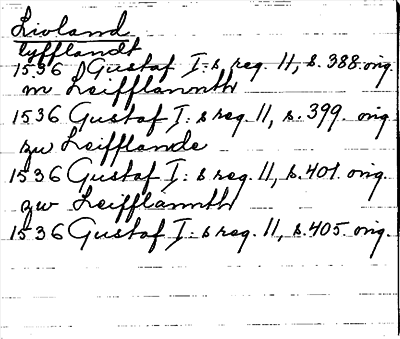 Livland
lyfflandt
1536 Gustaf I:s reg. 11, s. 388. orig.
in Leifflannth
1536 Gustaf I:s reg. 11, s. 399. orig.
zu Leifflande
1536 Gustaf I:s reg. 11, s. 401. orig.
zw Leifflannth
1536 Gustaf I:s reg. 11, s. 405. orig.